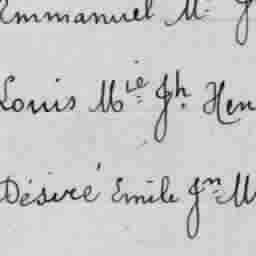 Emmanuel M. J
Louis Mie Jh Hen
Désiré Emile Jn M